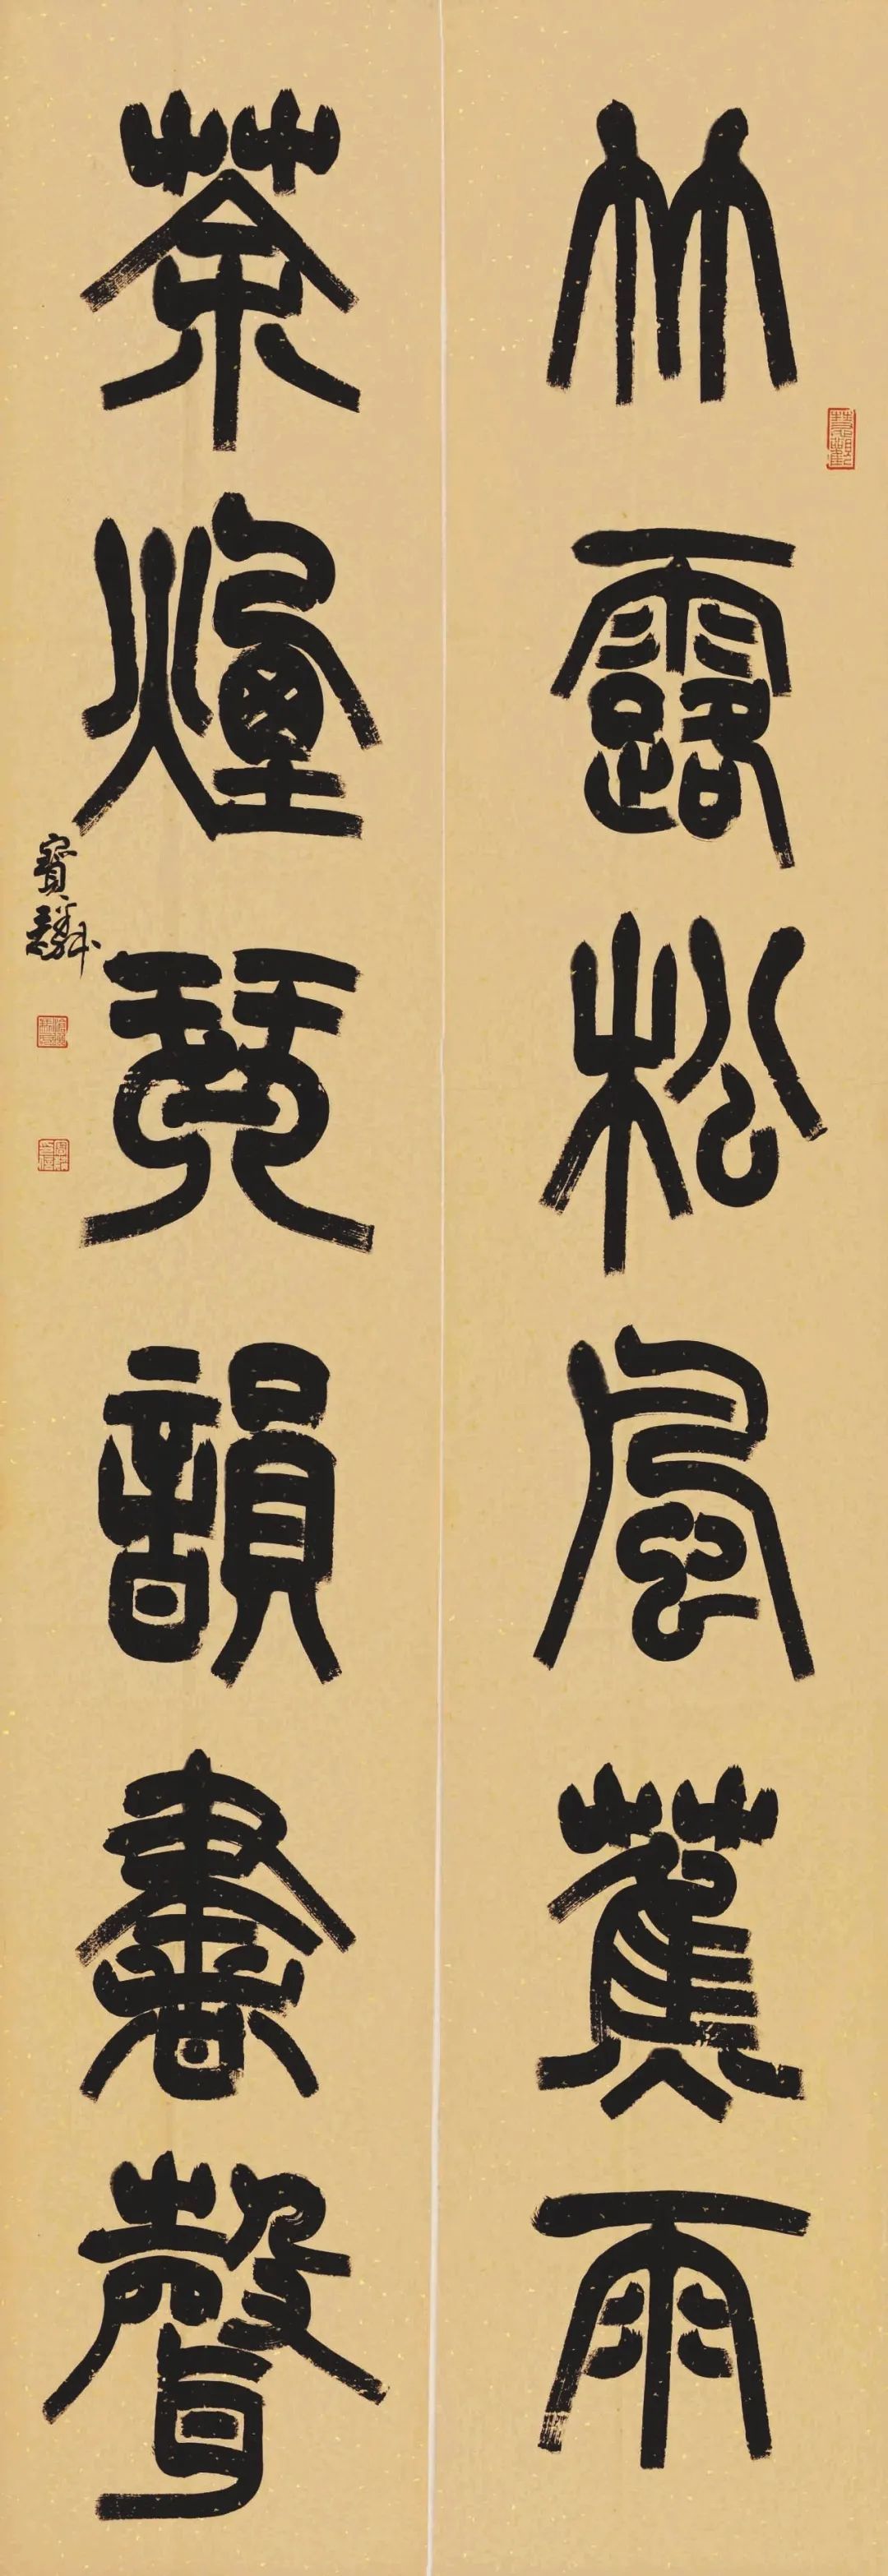 竹露松風蕉雨
茶煙琴韻書聲